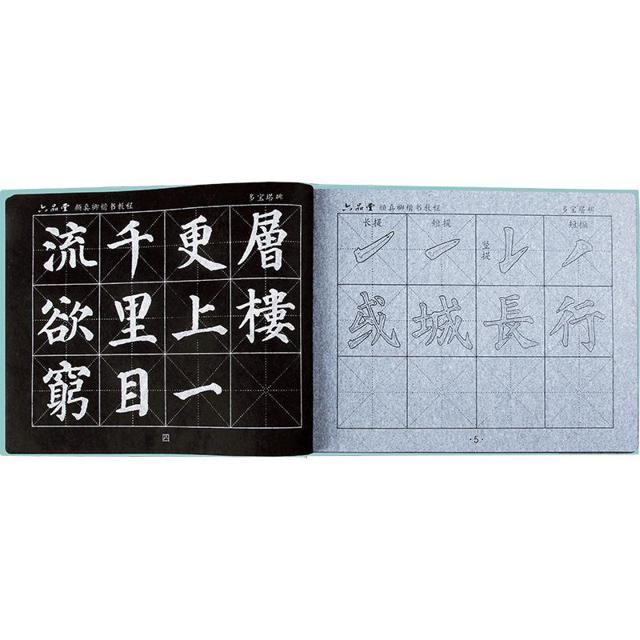 六品堂 颜真卿楷书教程 多宝塔碑
流欲窮
千里目
更上一
層樓
四
六品堂 颜真卿楷书教程 多宝塔碑
长提 短提 竖提 短撇
或 城 長 行
·5·